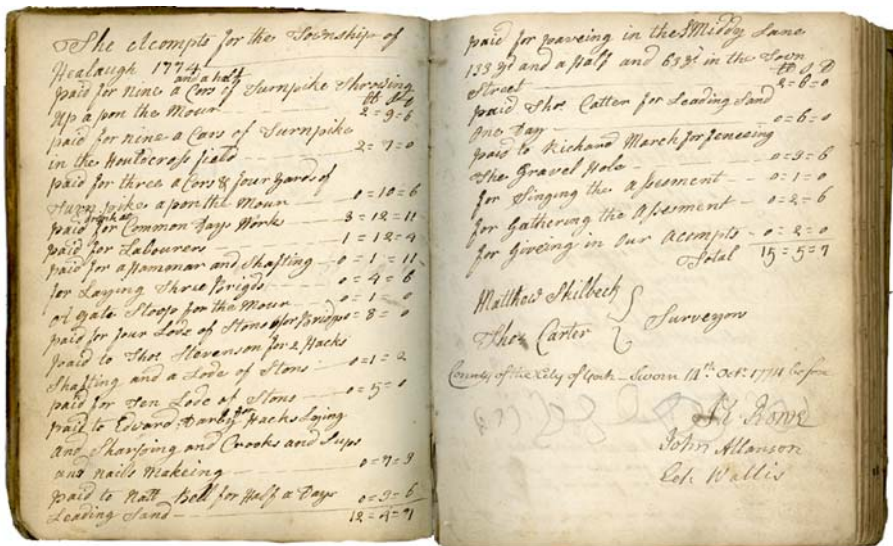 The Acompts for the Township of
Healaugh 1774
and a half
paid for nine a Cors of Turnpike Throsing
Up a pon the Mour 2=9=6
paid for nine a Cors of Turnpike
in the Houldcross field 2=7=0
paid for three a Cors & four yards of
Turn pike a pon the Mour 0=10=6
paid for Common Days Works 3=12=11
paid for Labourers 1=12=9
paid for a Hammar and Shafting 0=1=11
for Laying Three Brigs 0=4=6
a Gate Stoop for the Mour 0=1=0
paid for four Lode of Stons for Bridges 0=8=0
paid to Thos. Stevenson for 2 Hacks
Shafting and a Lode of Stons 0=1=2
paid for Ten Lode of Stons 0=5=0
paid to Edward Darby for Hacks Laying
and Sharping and Crooks and
and Nails Makeing 0=7=9
paid to Natt Bell for Half a Days
Leading Sand 0=3=6
12=4=7
paid for paveing in the SMiddy Lane
133 yd and a Half and 63 yd in the Town
Street 2=6=0
paid Thos. Catter for Leading Sand
One Day 0=6=0
paid to Richard March for feneeing
The Gravel Hole 0=3=6
for Singing the assesment 0=1=0
for Gathering the Assesment 0=2=6
for Giveing in Our Acompts 0=2=0
Total 15=5=7
Matthew Skilbeck
Thos. Carter
Surveyors
County of the City of York – Sworn 14th Octr. 1774 before
Rowe
John Allanson
Wallis